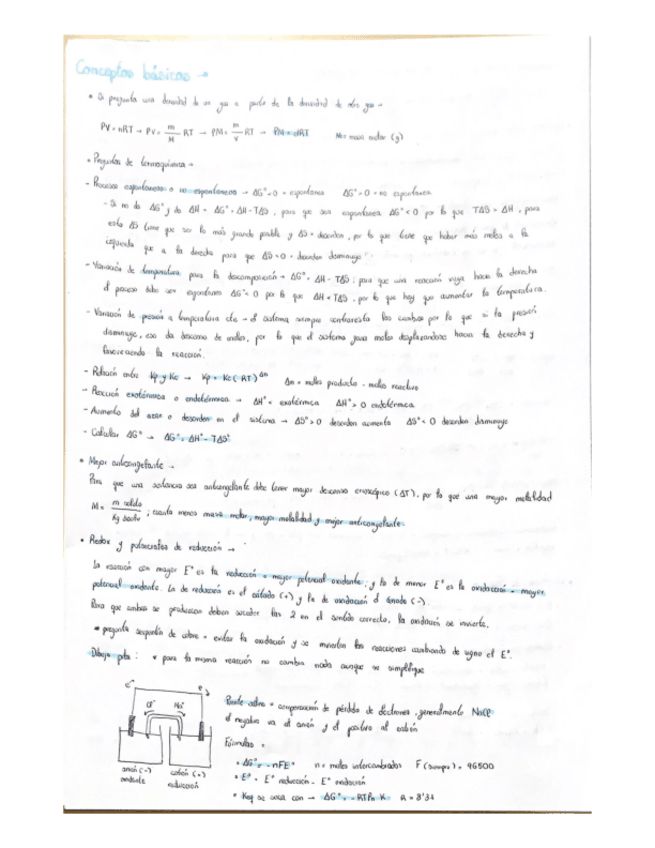 Conceptos básicos →
• Si pregunta una densidad de un gas a partir de la densidad de otro gas →
PV = nRT → PV = m/M RT → PM = m/V RT → PM = dRT M = masa molar (g)
• Preguntas de termoquímica →
- Procesos espontáneos o no espontáneos → ΔG° < 0 = espontánea ΔG° > 0 = no espontánea
- Si no da ΔG° y da ΔH → ΔG° = ΔH - TΔS, para que sea espontánea ΔG° < 0 por lo que TΔS > ΔH, para
esto ΔS tiene que ser lo más grande posible y ΔS = desorden, por lo que tiene que haber más moles a la
izquierda que a la derecha para que ΔS < 0 = desorden disminuye
- Variación de temperatura para la descomposición → ΔG° = ΔH - TΔS; para que una reacción vaya hacia la derecha
el proceso debe ser espontáneo ΔG° < 0 por lo que ΔH < TΔS, por lo que hay que aumentar la temperatura.
- Variación de presión a temperatura cte → el sistema siempre contrarresta los cambios por lo que si la presión
disminuye, eso da descenso de moles, por lo que el sistema gana moles desplazándose hacia la derecha y
favoreciendo la reacción.
- Relación entre Kp y Kc → Kp = Kc (RT)^Δn Δn = moles producto - moles reactivo
- Reacción exotérmica o endotérmica → ΔH° < exotérmica ΔH° > 0 endotérmica
- Aumento del azar o desorden en el sistema → ΔS° > 0 desorden aumenta ΔS° < 0 desorden disminuye
- Calcular ΔG° → ΔG° = ΔH° - TΔS°
• Mejor anticongelante →
Para que una sustancia sea anticongelante debe tener mayor descenso crioscópico (ΔT), por lo que una mayor molalidad
M = m soluto / Kg disolv ; cuanta menos masa molar, mayor molalidad y mejor anticongelante.
• Redox y potenciales de reducción →
La reacción con mayor E° es la reducción = mayor potencial oxidante; y la de menor E° es la oxidación = mayor
potencial oxidante. La de reducción es el cátodo (+) y la de oxidación el ánodo (-).
Para que ambas se produzcan deben suceder las 2 en el sentido correcto, la oxidación se invierte.
• pregunta serpentín de cobre = evitar la oxidación y se invierten las reacciones cambiando de signo el E°.
Dibujo pila: • para la misma reacción no cambia nada aunque se simplifique
e⁻ e⁻
Cl⁻ Na⁺
ánodo (-) cátodo (+)
oxidante reducción
Puente salino = compensación de pérdida de electrones, generalmente NaCl
el negativo va al ánodo y el positivo al catión
Fórmulas =
• ΔG° = -nFE° n = moles intercambiados F (siempre) = 96500
• E° = E° reducción - E° oxidación
• Keq se saca con → ΔG° = -RT ln K R = 8'31